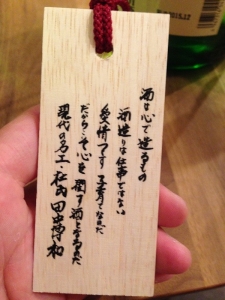 酒は心で造るもの
酒造りは仕事ではない
愛情です 子育てなのだ
だから心を潤す酒となるのだ
現代の名工・杜氏 田中博和